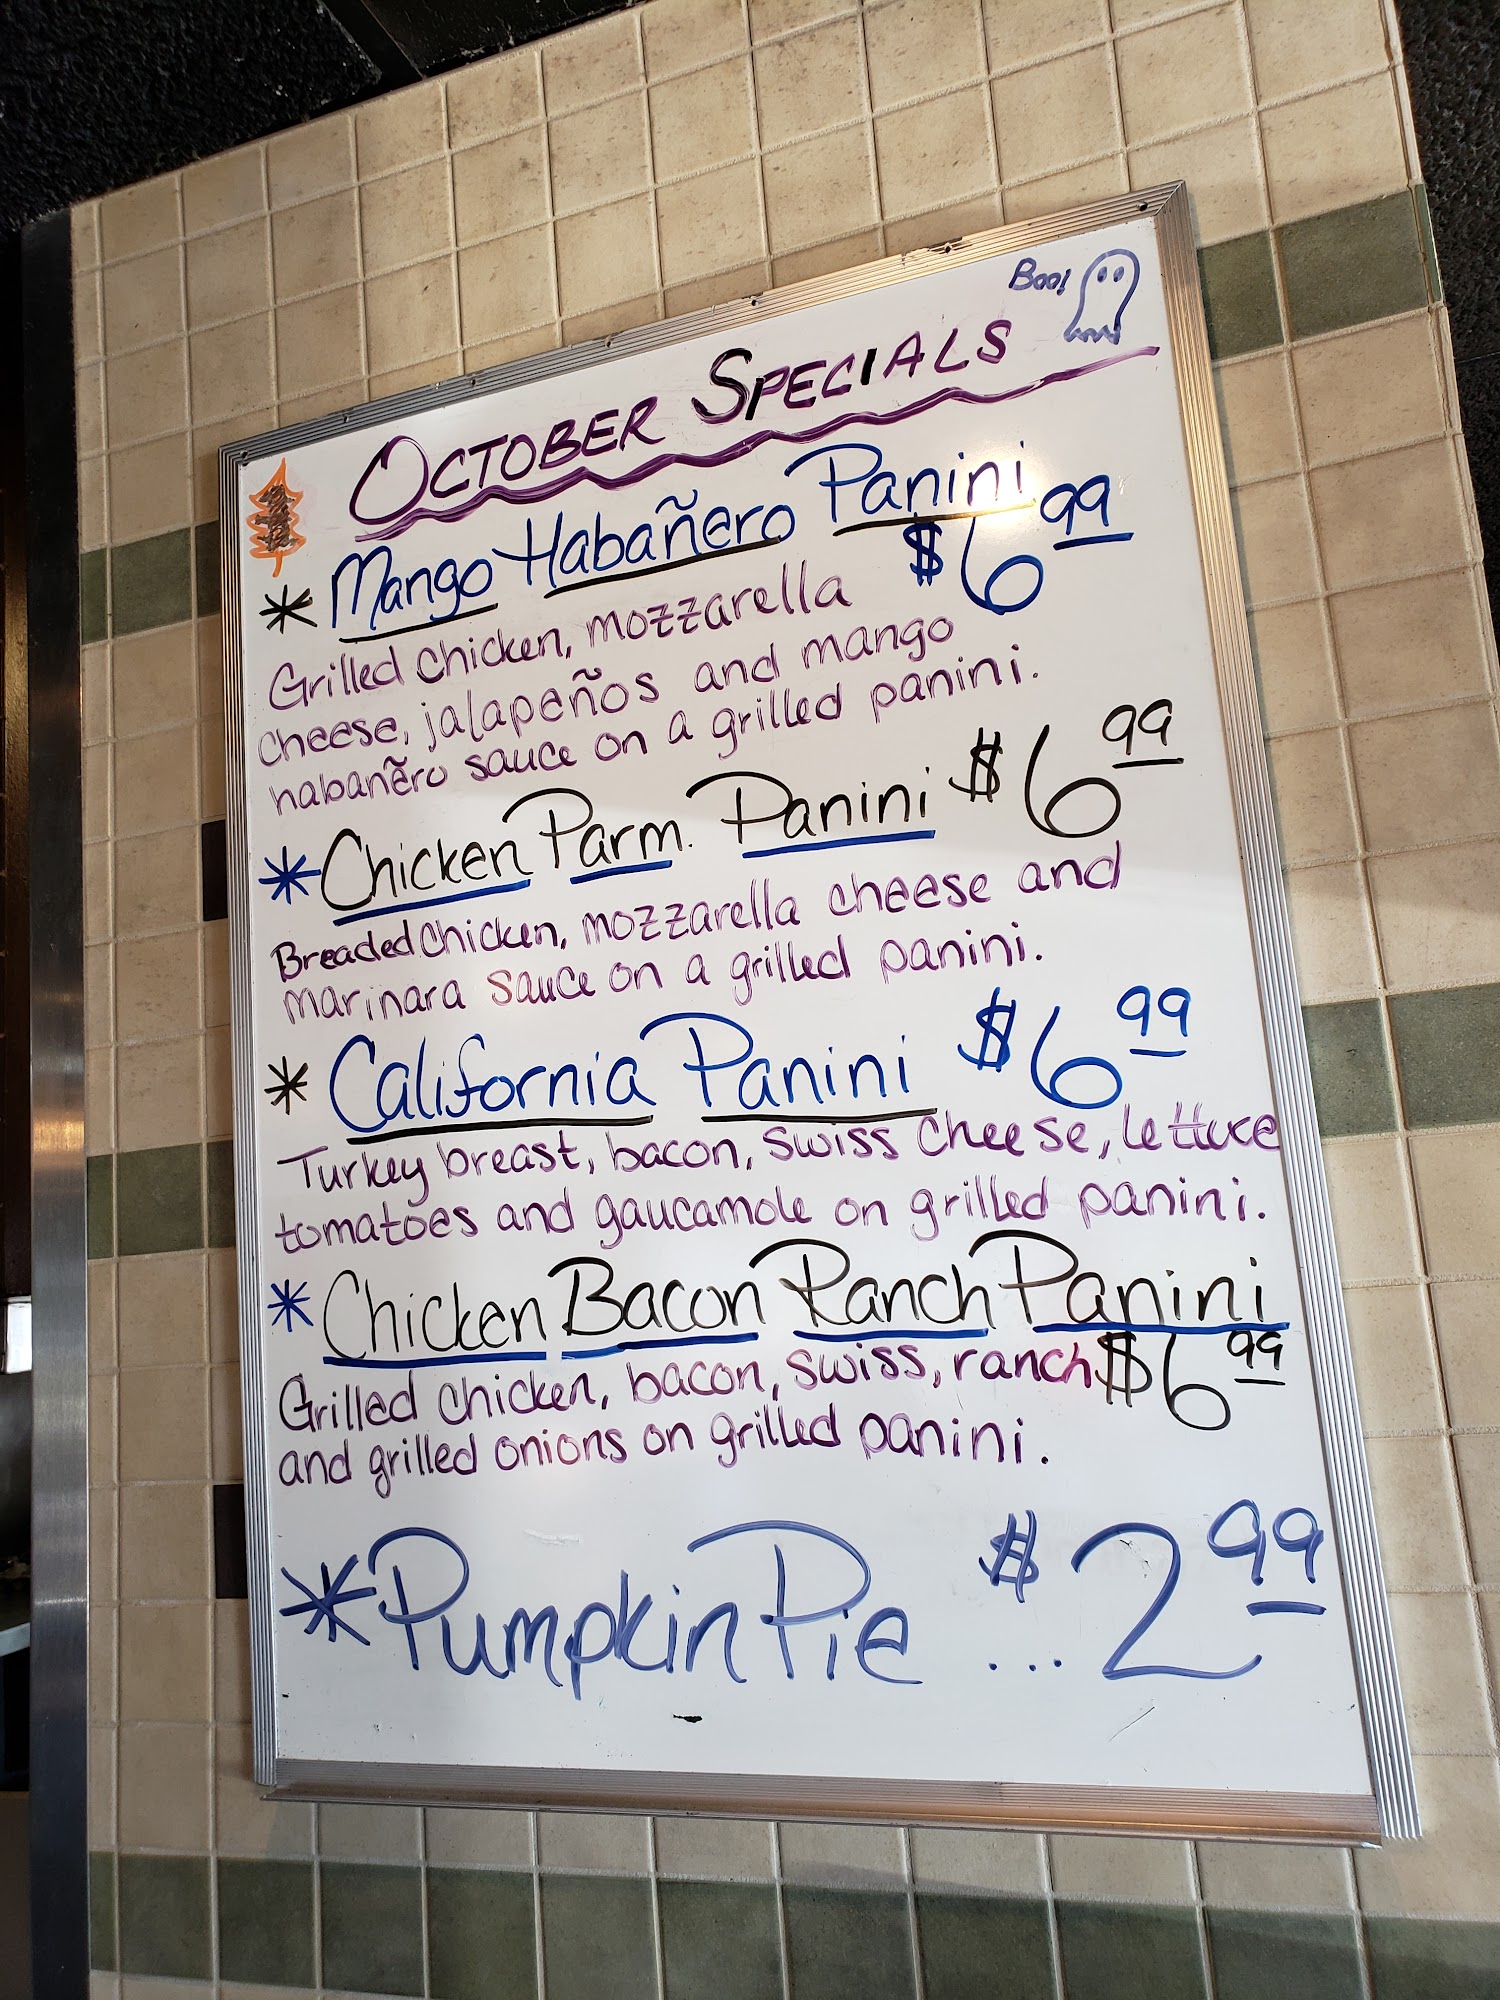 Boo!
OCTOBER SPECIALS
* Mango Habañero Panini
$6.99
Grilled chicken, mozzarella
cheese, jalapeños and mango
habañero sauce on a grilled panini.
* Chicken Parm. Panini $6.99
Breaded chicken, mozzarella cheese and
marinara sauce on a grilled panini.
* California Panini $6.99
Turkey breast, bacon, swiss cheese, lettuce
tomatoes and gaucamole on grilled panini.
* Chicken Bacon Ranch Panini
Grilled chicken, bacon, swiss, ranch $6.99
and grilled onions on grilled panini.
* Pumpkin Pie ... $2.99